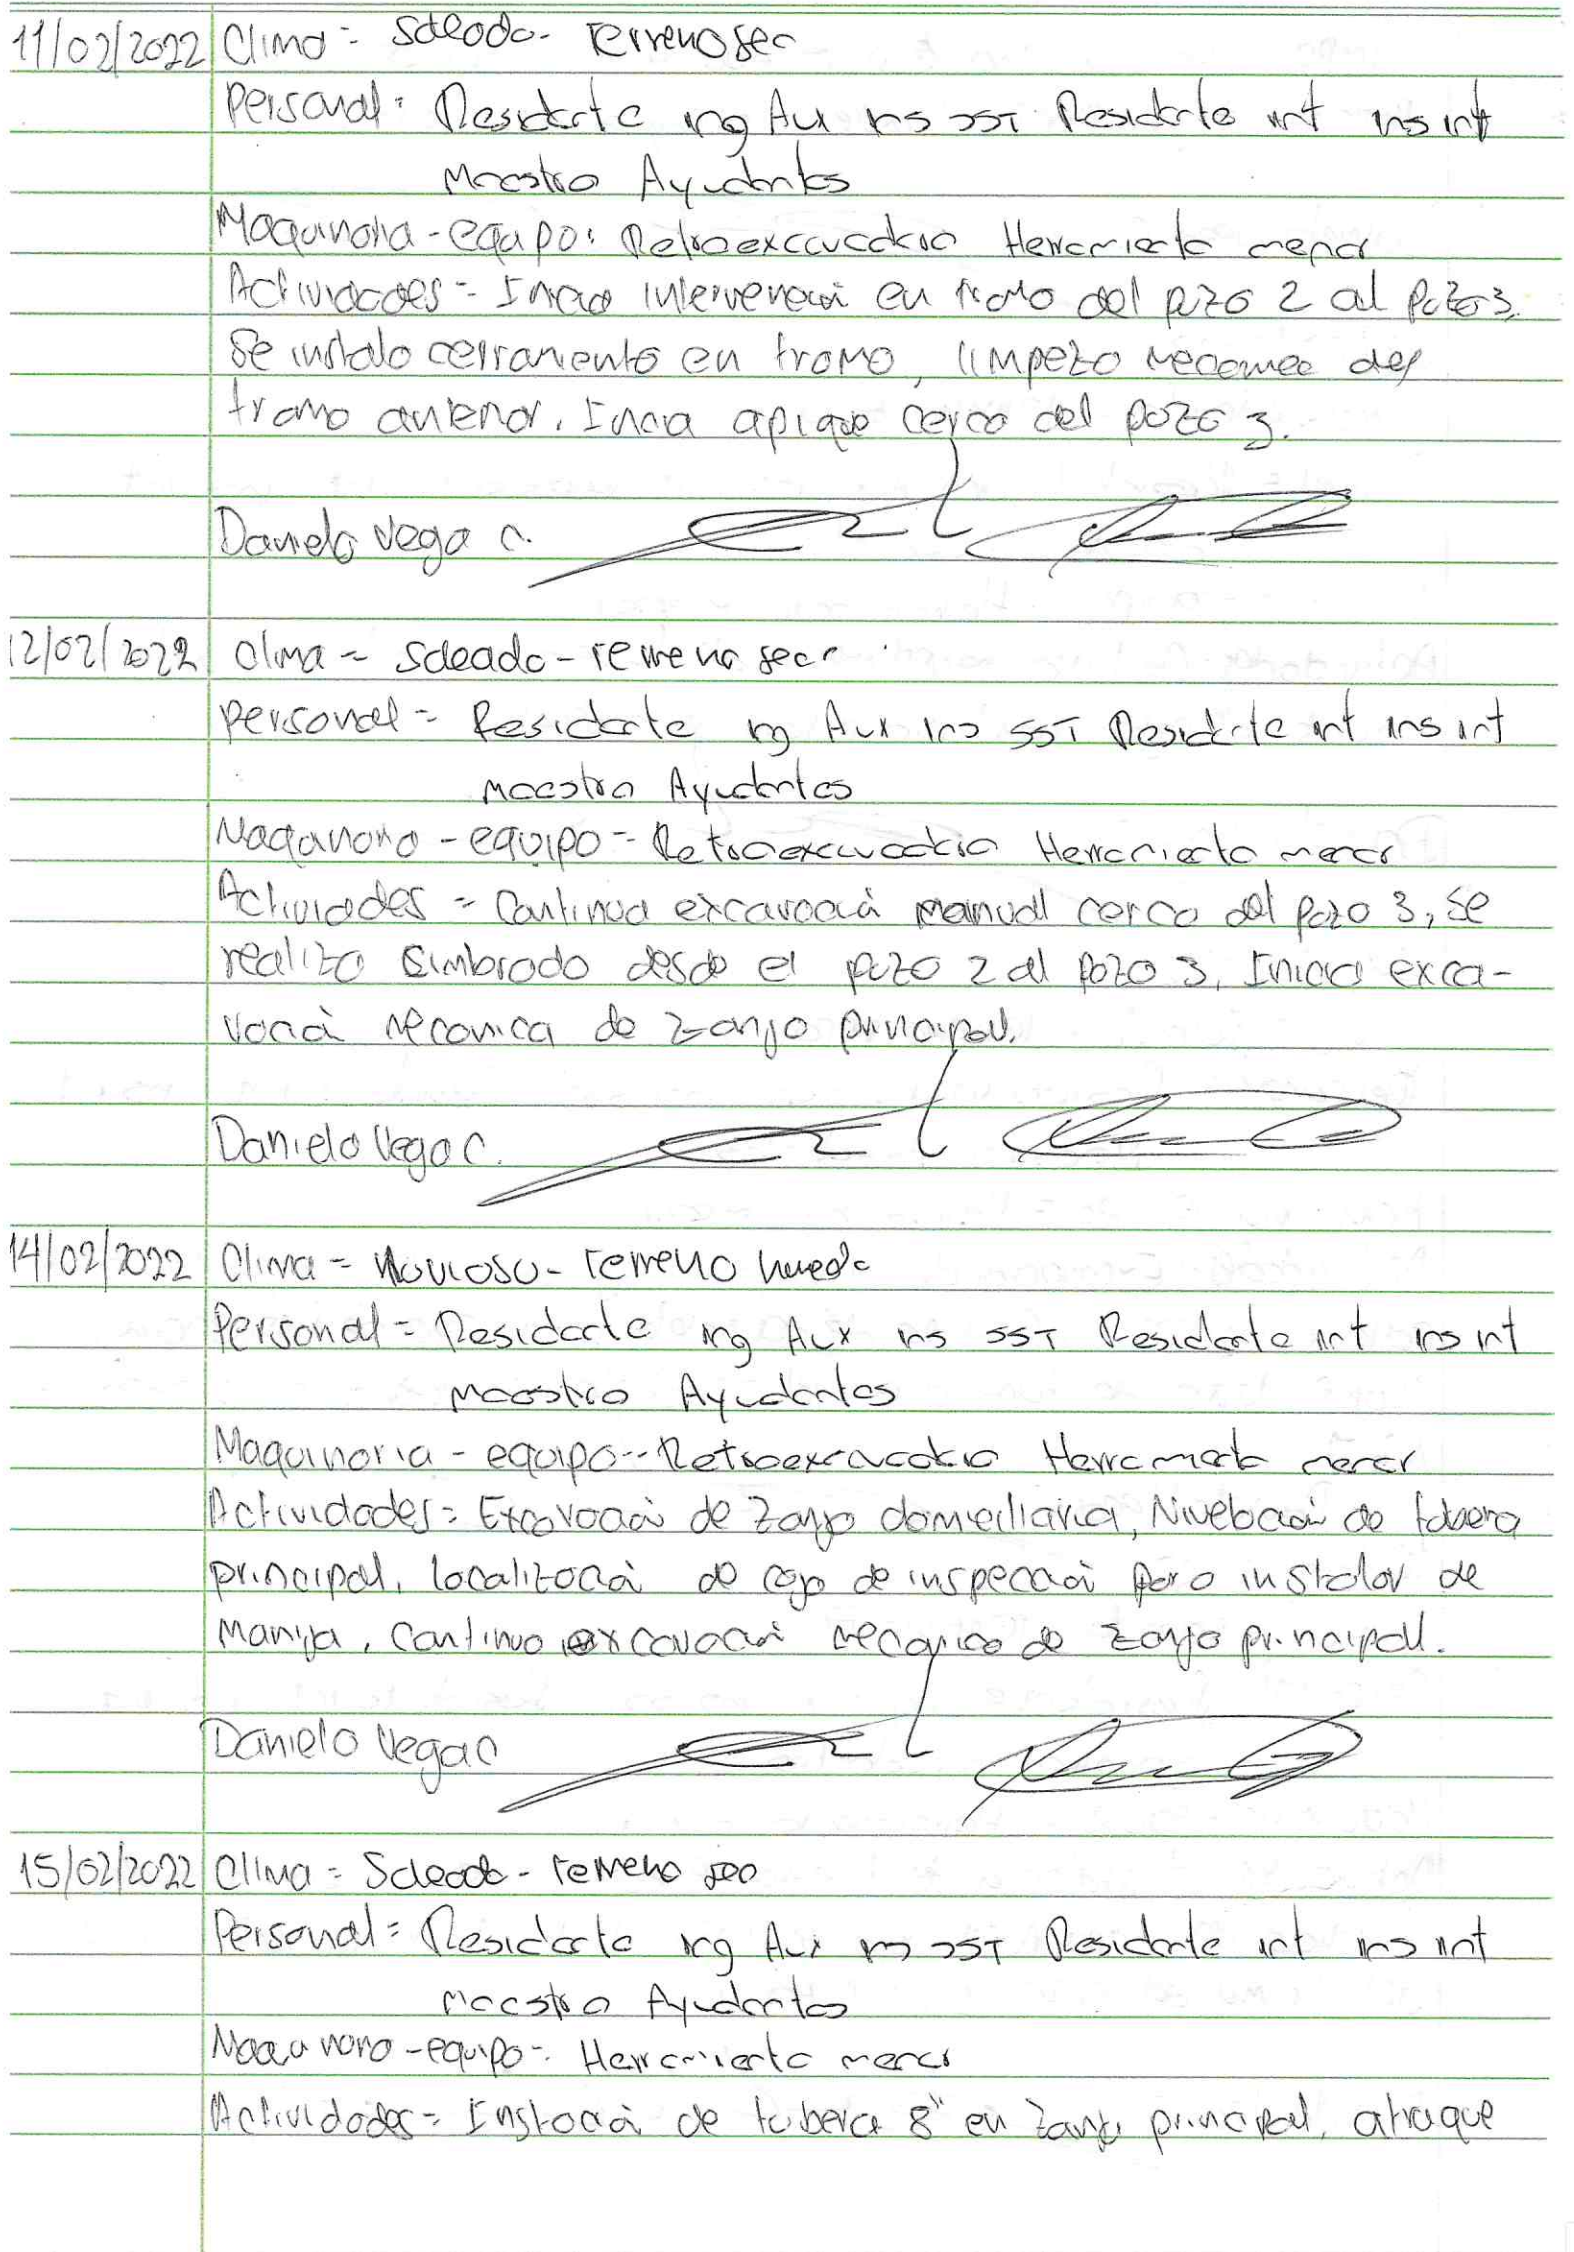 11/02/2022 Clima = Soleado - Terreno seco
Personal: Residente ing Aux ins SST Residente int ins int
Maestro Ayudantes
Maquinaria - equipo: Retroexcavadora Herramienta menor
Actividades = Inicia intervención en tramo del pozo 2 al pozo 3.
Se instalo cerramiento en tramo, limpieza del
tramo anterior. Inicia apique cerca del pozo 3.
Daniela Vega C.
12/02/2022 Clima = Soleado - Terreno seco
Personal = Residente ing Aux ins SST Residente int ins int
Maestro Ayudantes
Maquinaria - equipo = Retroexcavadora Herramienta menor
Actividades = Continua excavación manual cerca del pozo 3, se
realizo Cimbrado desde el pozo 2 al pozo 3, Inicia exca-
vación mecanica de zanja principal.
Daniela Vega C.
14/02/2022 Clima = Lluvioso - Terreno humedo
Personal = Residente ing Aux ins SST Residente int ins int
Maestro Ayudantes
Maquinaria - equipo = Retroexcavadora Herramienta menor
Actividades = Excavación de zanja domiciliaria, Nivelación de tuberia
principal, localización de caja de inspección para instalar de
Manija, Continua excavación mecanica de zanja principal.
Daniela Vega C
15/02/2022 Clima = Soleado - Terreno seco
Personal = Residente ing Aux ins SST Residente int ins int
Maestro Ayudantes
Maquinaria - equipo = Herramienta menor
Actividades = Instoación de tuberia 8" en zanja principal, atraque